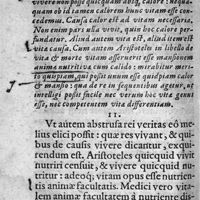 vivere non posse quicquam absq, calore: nequa-
cedemus. Causa calor est ad vitam necessaria,
Non enim pars ulla vevit, quin hoc calore per-
fundatur. Aliud autem vita est, aliud itẽ est
vitæ causa. Cum autem Aristoteles in libello de
vita & morte vitam asseruerit esse mansionem
animæ nutritivæ cum calido: mirabitur meri-
to quispiam, qui possit unum esse quidpiam calor
& mansio: qua de re in sequentibus agetur, ut
intelligi possit sincile nec verum hoc vitæ genus
esse, nec competentem vitæ differentiam.
11.
Ut autem abstrusa rei veritas eò me-
lius elici possit: quæ res vivant, & qui-
bus de causis vivere dicantur, exqui-
rendum est. Aristoteles quicquid vivit
nutriri censuit, & vivere quicquid nu-
tritur: adeoq; vitam opus esse nutrien-
tis animæ facultatis. Medici vero vita-
lem animæ facultatem à nutriente di-